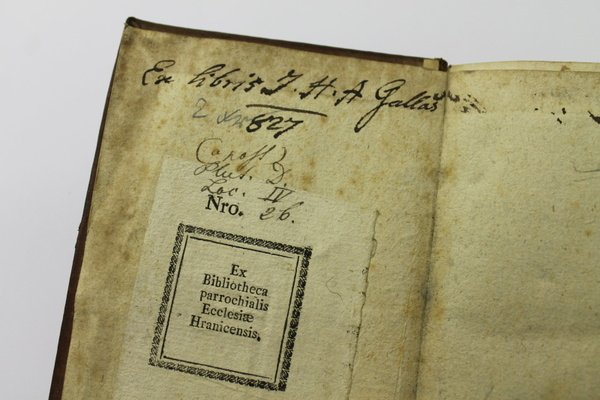 Ex libris J. H. A Gallaš
827
Plut. D.
Loc. IV
Nro. 26.
Ex
Bibliotheca
parrochialis
Ecclesiæ
Hranicensis.